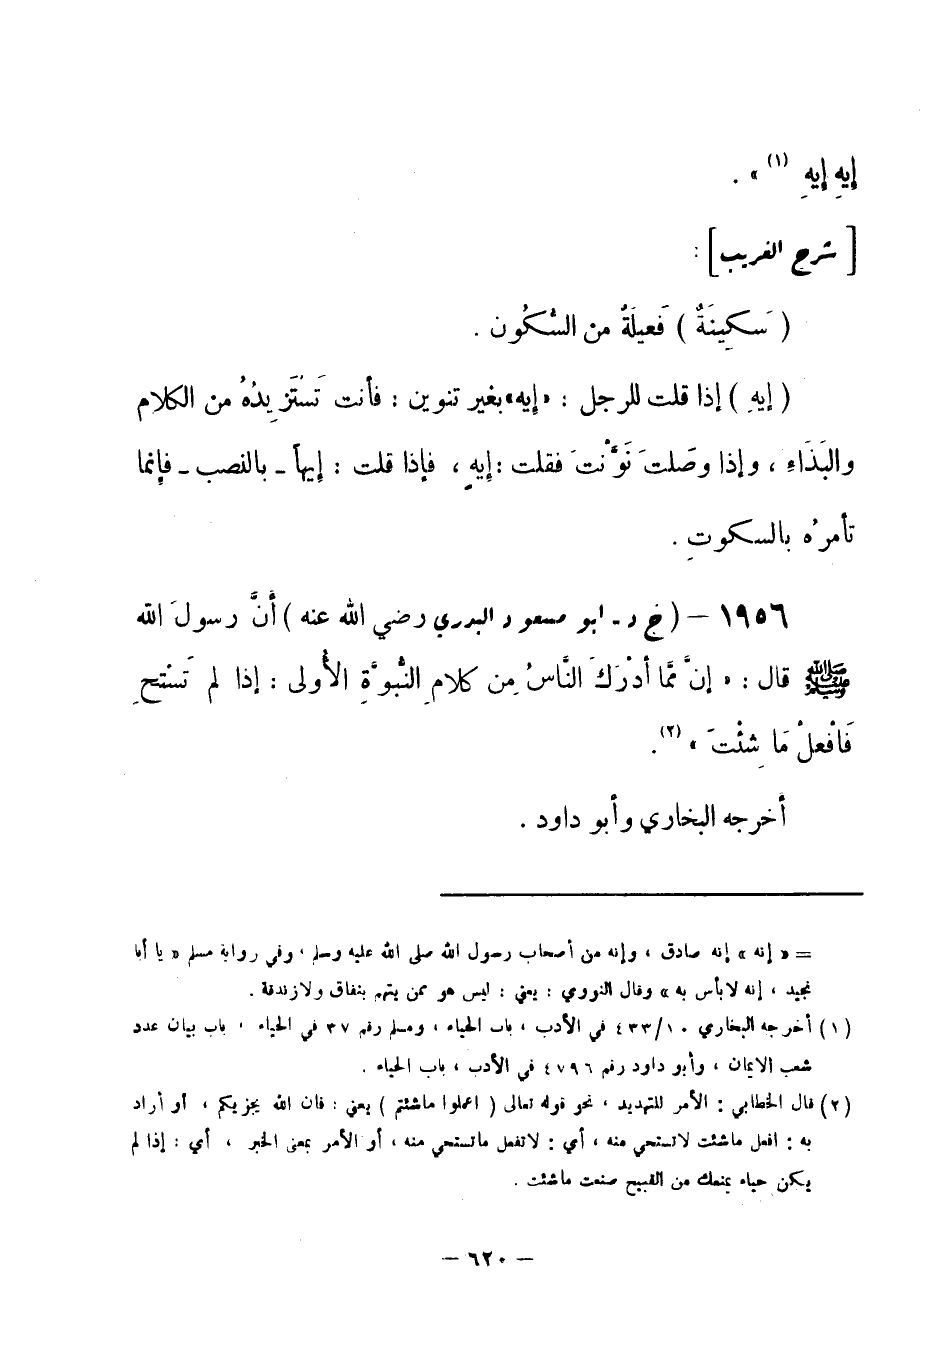 إِيهِ إِيهِ (١) » .
[ شرح الغريب ] :
( سَكِينَةً ) فَعيلَةٌ من السُّكُون .
( إيهِ ) إذا قلت للرجل : « إيه » بغير تنوين : فأنت تَسْتَزِيدُهُ من الكلام
والبَذَاءِ ، وإذا وصَلتَ نَوَّنْتَ فقلت : إيهٍ ، فإذا قلت : إيهاً ـ بالنصب ـ فإنما
تأمرُه بالسكوتِ .
١٩٥٦ – ( خ د ـ أبو مسعود البدري رضي الله عنه ) أَنَّ رسولَ الله
ﷺ قال : « إنَّ مما أدْرَكَ النَّاسُ مِن كلامِ النُّبوَّةِ الأُولى : إذا لم تَسْتْحِ
فَافْعلْ مَا شِئْتَ » (٢) .
أخرجه البخاري وأبو داود .
= « إنه » إنه صادق ، وإنه من أصحاب رسول الله صلى الله عليه وسلم ، وفي رواية مسلم « يا أبا
نجيد ، إنه لا بأس به » وقال النووي : يعني : ليس هو ممن يتهم بنفاق ولا زندقة .
(١) أخرجه البخاري ٤٣٣/١٠ في الأدب ، باب الحياء ، ومسلم رقم ٣٧ في الحياء ، باب بيان عدد
شعب الايمان ، وأبو داود رقم ٤٧٩٦ في الأدب ، باب الحياء .
(٢) قال الخطابي : الأمر للتهديد ، نحو قوله تعالى ( اعملوا ماشئتم ) يعني : فان الله يجزيكم ، أو أراد
به : افعل ماشئت لاتستحي منه ، أي : لاتفعل ماتستحي منه ، أو الأمر بمعنى الخبر ، أي : إذا لم
يكن حياء يمنعك من القبيح صنعت ماشئت .
– ٦٢٠ –